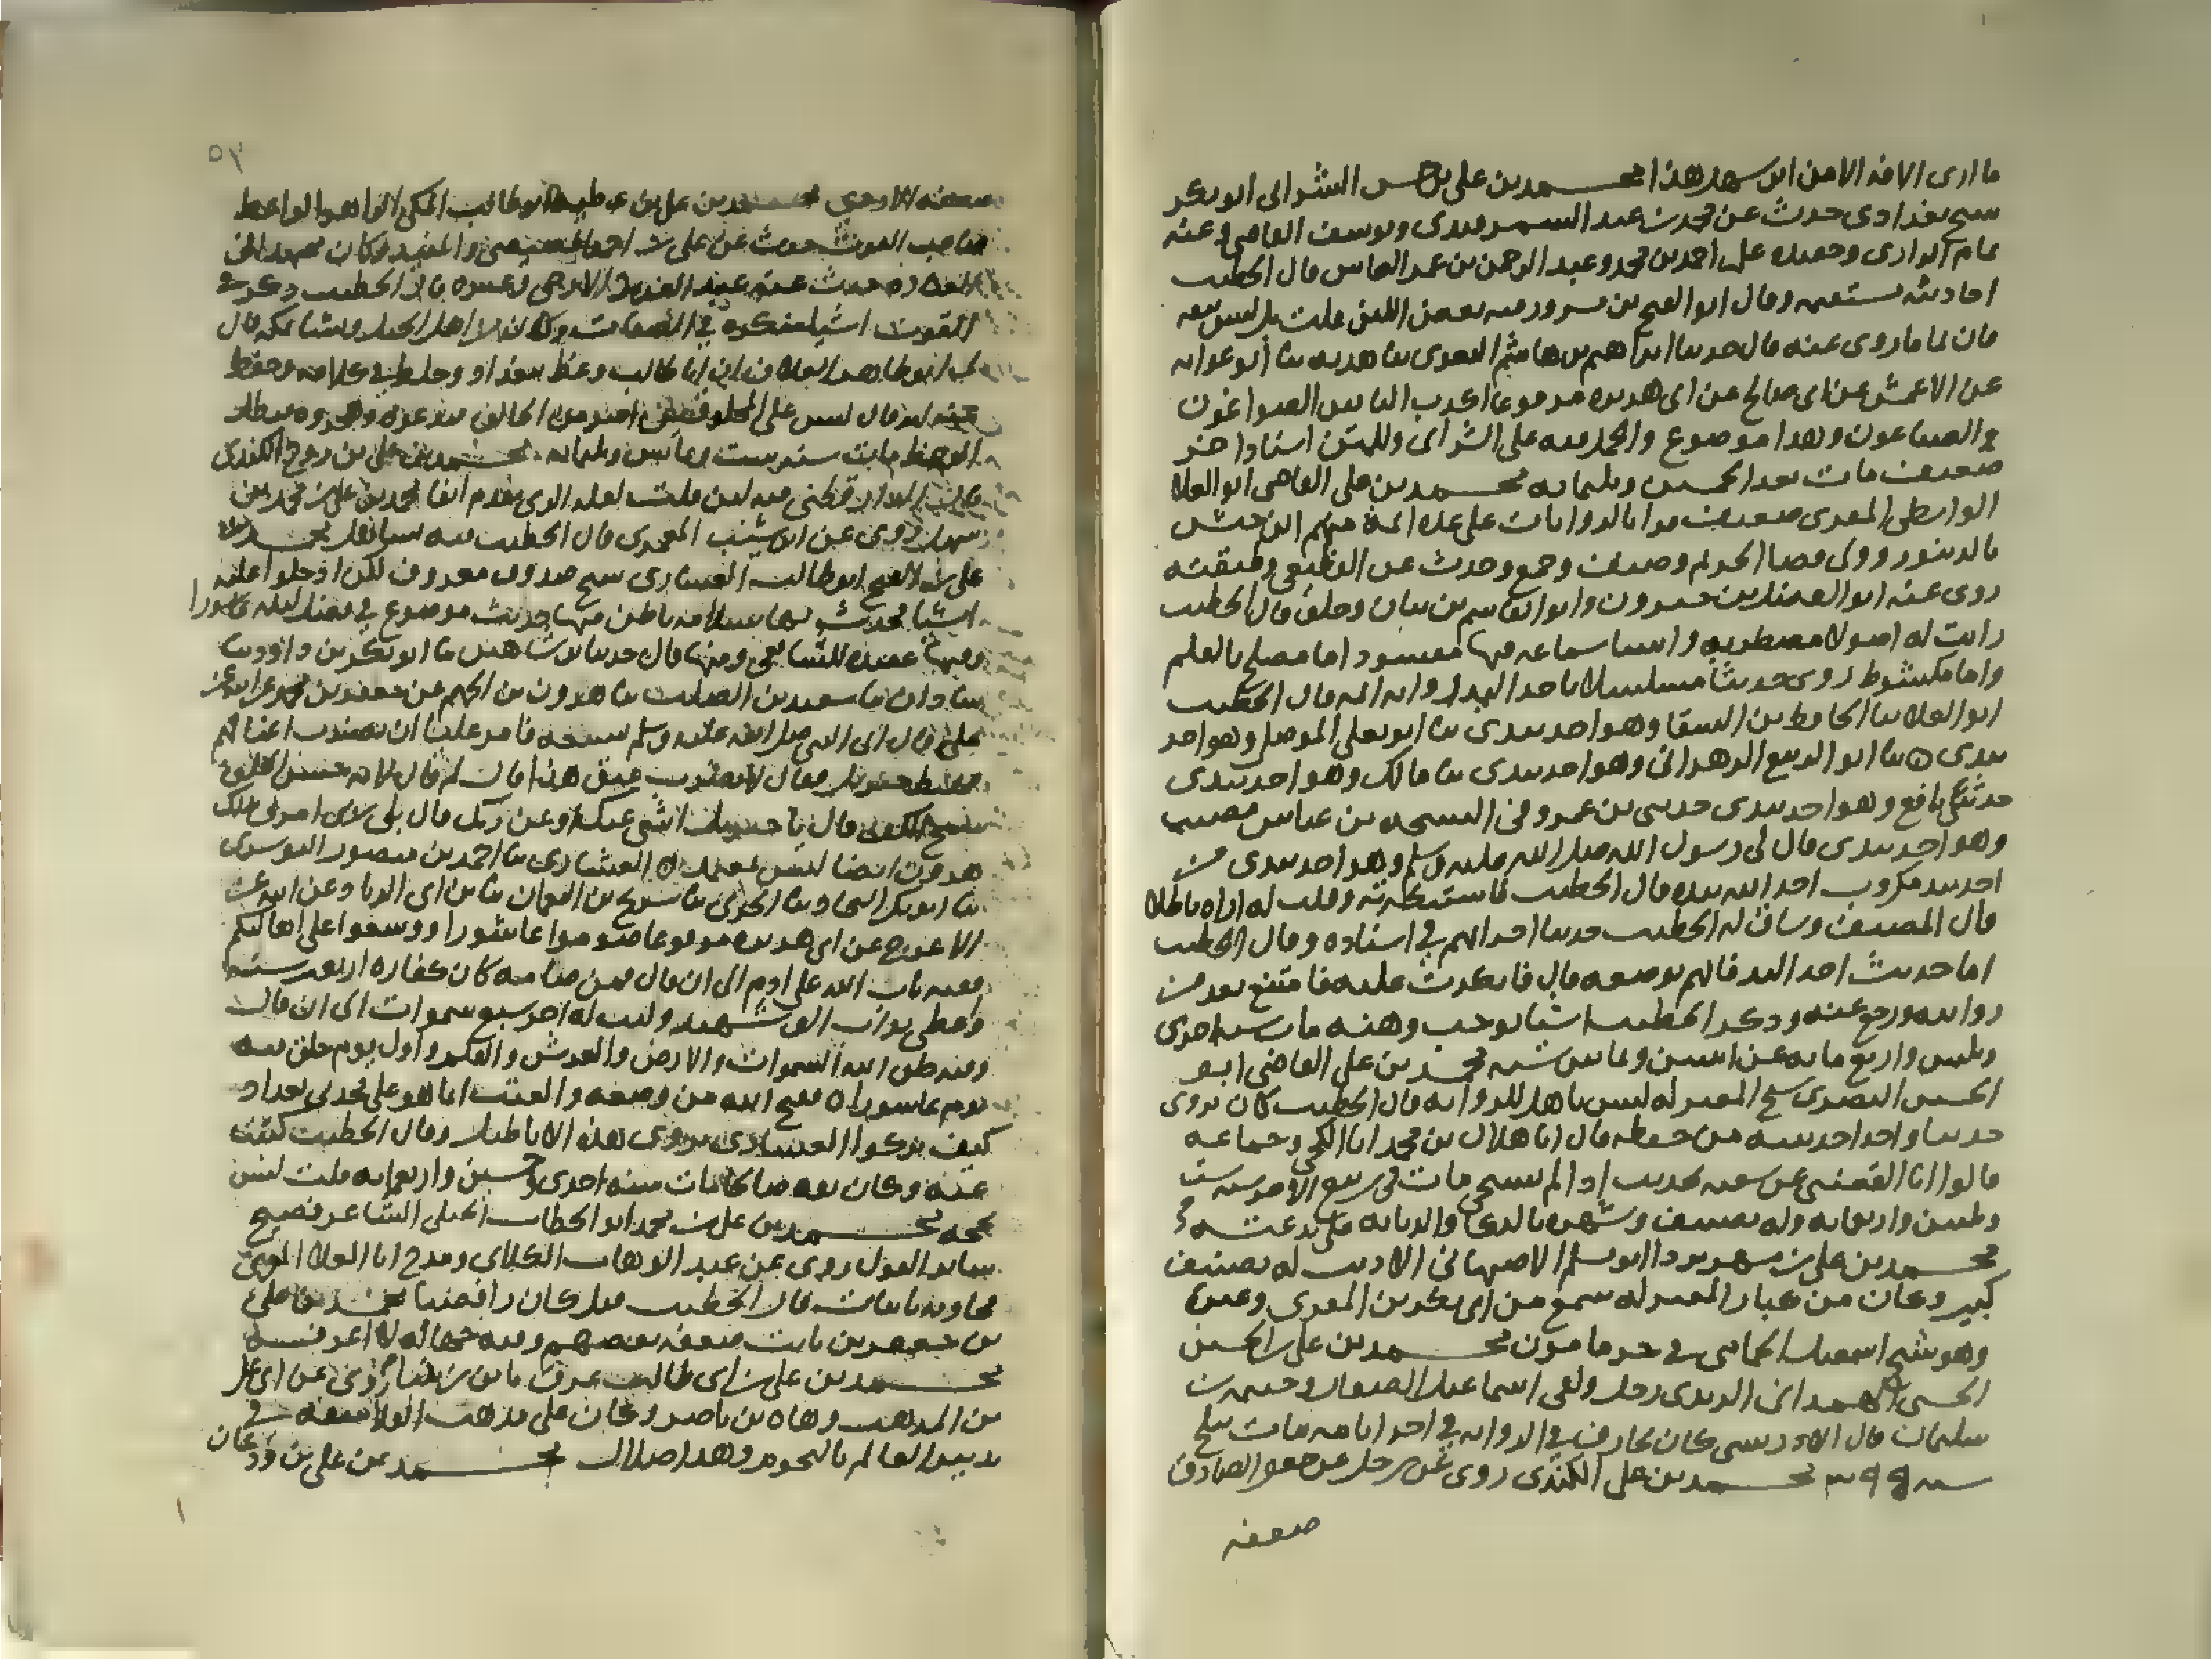 ما ارى الافه الا من ابن سهل هذا محمد بن علي بن حسن الشرابي ابو بكر
شيخ بغدادي حدث عن محمد بن عبد السمرقندي ويوسف القاضي وعنه
تمام الرازي وحفيده علي بن احمد بن محمد وعبد الرحمن بن عمر النحاس قال الخطيب
احاديثه مستقيمه وقال ابو الفتح بن مسرور فيه بعض اللين قلت بل ليس بثقه
فان تماما روى عنه قال حدثنا ابراهيم بن هاشم البغوي ثنا هدبه ثنا ابو عوانه
عن الاعمش عن ابي صالح عن ابي هريره مرفوعا اكذب الناس الصواغون
والصباغون وهذا موضوع والحمل فيه على الشرابي وللمتن اسناد اخر
ضعيف مات بعد الخمسين وثلثمايه محمد بن علي القاضي ابو العلا
الواسطي المقري ضعيف قرا بالروايات على عده ائمة منهم ابن حبش
بالدينور وولي قضا الحريم وصنف وجمع وحدث عن القطيعي وطبقته
روى عنه ابو الفضل بن خيرون وابو القاسم بن بيان وخلق قال الخطيب
رايت له اصولا مضطربه واشيا سماعه فيها مفسود اما مصلح بالقلم
واما مكشوط روى حديثا مسلسلا باخذ اليد رواته ائمه قال الخطيب
ابو العلا ثنا الحافظ بن السقا وهو اخذ بيدي ثنا ابو يعلى الموصلي وهو اخذ
بيدي ثنا ابو الربيع الزهراني وهو اخذ بيدي ثنا مالك وهو اخذ بيدي
حدثني نافع وهو اخذ بيدي حدثني بن عباس
وهو اخذ بيدي قال لي رسول الله صلى الله عليه وسلم وهو اخذ بيدي من
اخذ بيد مكروب اخذ الله بيده قال الخطيب فاستنكرته وقلت له اراه باطلا
قال المصنف وساق له الخطيب حديثا اخر اتهم في اسناده وقال الخطيب
اما حديث اخذ اليد فاتهم بوضعه قال فانكرت عليه فامتنع بعد من
روايته ورجع عنه وذكر الخطيب اشيا توجب وهنه مات سنه احدى
وثلثين واربع مايه عن اثنين وثمانين سنه محمد بن علي القاضي ابو
الحسين البصري شيخ المعتزله ليس باهل للروايه قال الخطيب كان يروي
حديثا واحدا حدثنيه من حفظه قال انا هلال بن محمد انا الكجي وجماعه
قالوا انا القعنبي عن شعبه بحديث اذا لم تستحي مات في ربيع الاخر سنه ست
وثلثين واربعمايه وله تصنيف وشهره بالذكا والديانه على بدعته
محمد بن علي بن مهربزد ابو مسلم الاصبهاني الاديب له تصنيف
كبير وكان من كبار المعتزله سمع من ابي بكر بن المقري وغيره
وهو شيخ اسمعيل الحمامي في جزء مامون محمد بن علي بن الحسين
الحسني الهمداني الزيدي رحل ولقي اسماعيل الصفار وخيثمه بن
سليمان قال الادريسي كان يجازف في الروايه في اخر ايامه مات ببلخ
سنه ٣٩٥ محمد بن علي الكندي روى عن رجل عن جعفر الصادق
ضعفه
٥٢
ضعفه الازدي محمد بن علي بن عطيه ابو طالب المكي الزاهد الواعظ
صاحب القوت حدث عن علي بن احمد المصيصي والمفيد وكان مجتهدا في
العباده حدث عنه عبد العزيز الازجي وغيره قال الخطيب ذكر في
القوت اشيا منكره في الصفات وكان من اهل الجبل ونشا بمكه قال
لي ابو طاهر العلاف ان ابا طالب وعظ ببغداد وخلط في كلامه وحفظ
عنه انه قال ليس على المخلوقين اضر من الخالق فبدعوه وهجروه فبطل
الوعظ مات سنه ست وثمانين وثلثمايه محمد بن علي بن روح الكندي
قال الدارقطني فيه لين قلت لعله الذي تقدم انفا محمد بن علي بن محمد بن
سهل روى عن ابن شنب المقري قال الخطيب فيه تساهل محمد بن
علي بن الفتح ابو طالب العشاري شيخ صدوق معروف لكن ادخلوا عليه
اشيا فحدث بها بسلامه باطن منها حديث موضوع في فضل ليله عاشورا
ومنها عقيده للشافعي ومنها قال حدثنا بن شاهين ثنا ابو بكر بن ابي داود ثنا
شاذان ثنا سعد بن الصلت ثنا هرون بن الجهم عن جعفر بن محمد عن ابيه عن
علي قال اتى النبي صلى الله عليه وسلم بسبعه فامر عليا ان يضرب اعناقهم
فهبط جبريل فقال لا تضرب عنق هذا قال لم قال لانه حسن الخلق
سمح الكف قال يا جبريل اشي عنك او عن ربك قال بل ربي امرني بذلك
هرون ايضا ليس بمعتمد العشاري ثنا احمد بن منصور النوشري
ثنا ابو بكر النجاد ثنا الحربي ثنا سريج بن النعمان ثنا بن ابي الزناد عن ابيه عن
الاعرج عن ابي هريره مرفوعا صوموا عاشورا ووسعوا على اهاليكم
ففيه تاب الله على ادم الى ان قال فمن صامه كان كفاره اربعين سنه
واعطي ثواب الف شهيد وكتب له اجر سبع سموات الى ان قال
وفيه خلق الله السموات والارض والعرش والقلم واول يوم خلق فيه
يوم عاشورا ه فقبح الله من وضعه والعتب انما هو على محدثي بغداد
كيف تركوا العشاري يروي هذه الاباطيل وقال الخطيب كتبت
عنه وكان ثقه صالحا مات سنه احدى وخمسين واربعمايه قلت ليس
بحجه محمد بن علي بن محمد ابو الخطاب الجبلي الشاعر فصيح
ساير القول روى عن عبد الوهاب الكلابي ومدح ابا العلا المعري
فجاوبه بابيات قال الخطيب قيل كان رافضيا محمد بن علي
بن جعفر بن ثابت ضعفه بعضهم وفيه جهاله لا اعرفه
محمد بن علي بن ابي طالب عرف بابن زبيبا روى عن ابي علي
بن المذهب وهاه بن ناصر وكان على مذهب الفلاسفه في
تدبير العالم بالنجوم وهذا ضلال محمد بن علي بن ودعان